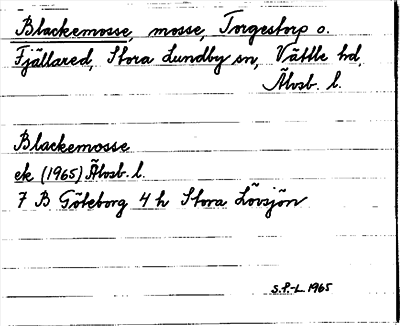 Blackemosse, mosse, Torgestorp o.
Fjällared, Stora Lundby sn, Vättle hd,
Älvsb. l.
Blackemosse
ek (1965) Älvsb. l.
7 B Göteborg 4 h Stora Lövsjön
S.P.-L 1965